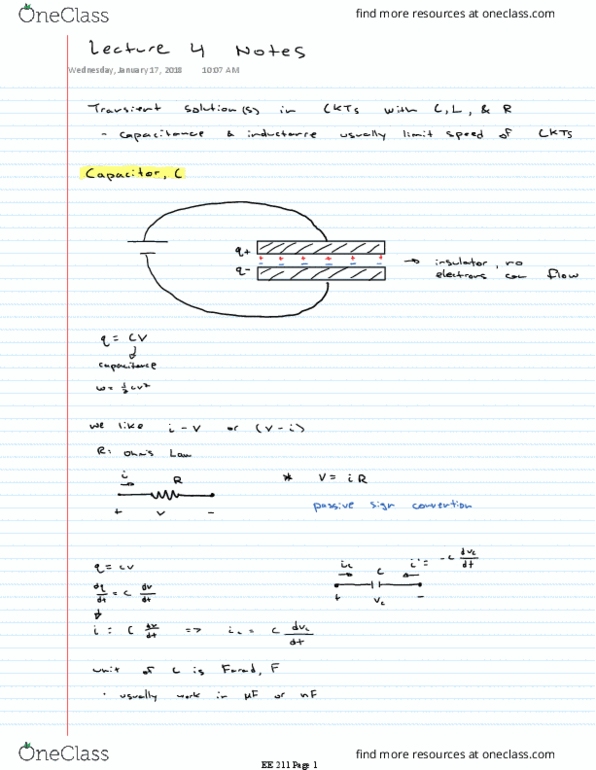 OneClass
find more resources at oneclass.com
Lecture 4 Notes
Wednesday, January 17, 2018 10:07 AM
Transient solution(s) in CKTs with C, L, & R
- capacitance & inductance usually limit speed of CKTs
Capacitor, C
q+
+ + + + + +
- - - - - -
q-
→ insulator, no
electrons can flow
q = CV
capacitance
w = ½ CV²
we like i - v or (v - i)
R: Ohm's Law
i R
+ v -
* V = iR
passive sign convention
q = CV
dq/dt = C dv/dt
i = C dv/dt => ic = C dvc/dt
ic C i' = -C dvc/dt
+ Vc -
unit of C is Farad, F
· usually work in μF or nF
OneClass
find more resources at oneclass.com
EE 211 Page 1